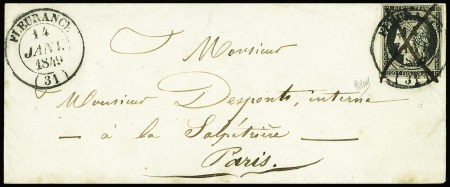 FLEURANCE
14
JANV.
1849
(31)
Monsieur
Monsieur Desponts, interne
— à la Salpétrière —
Paris.